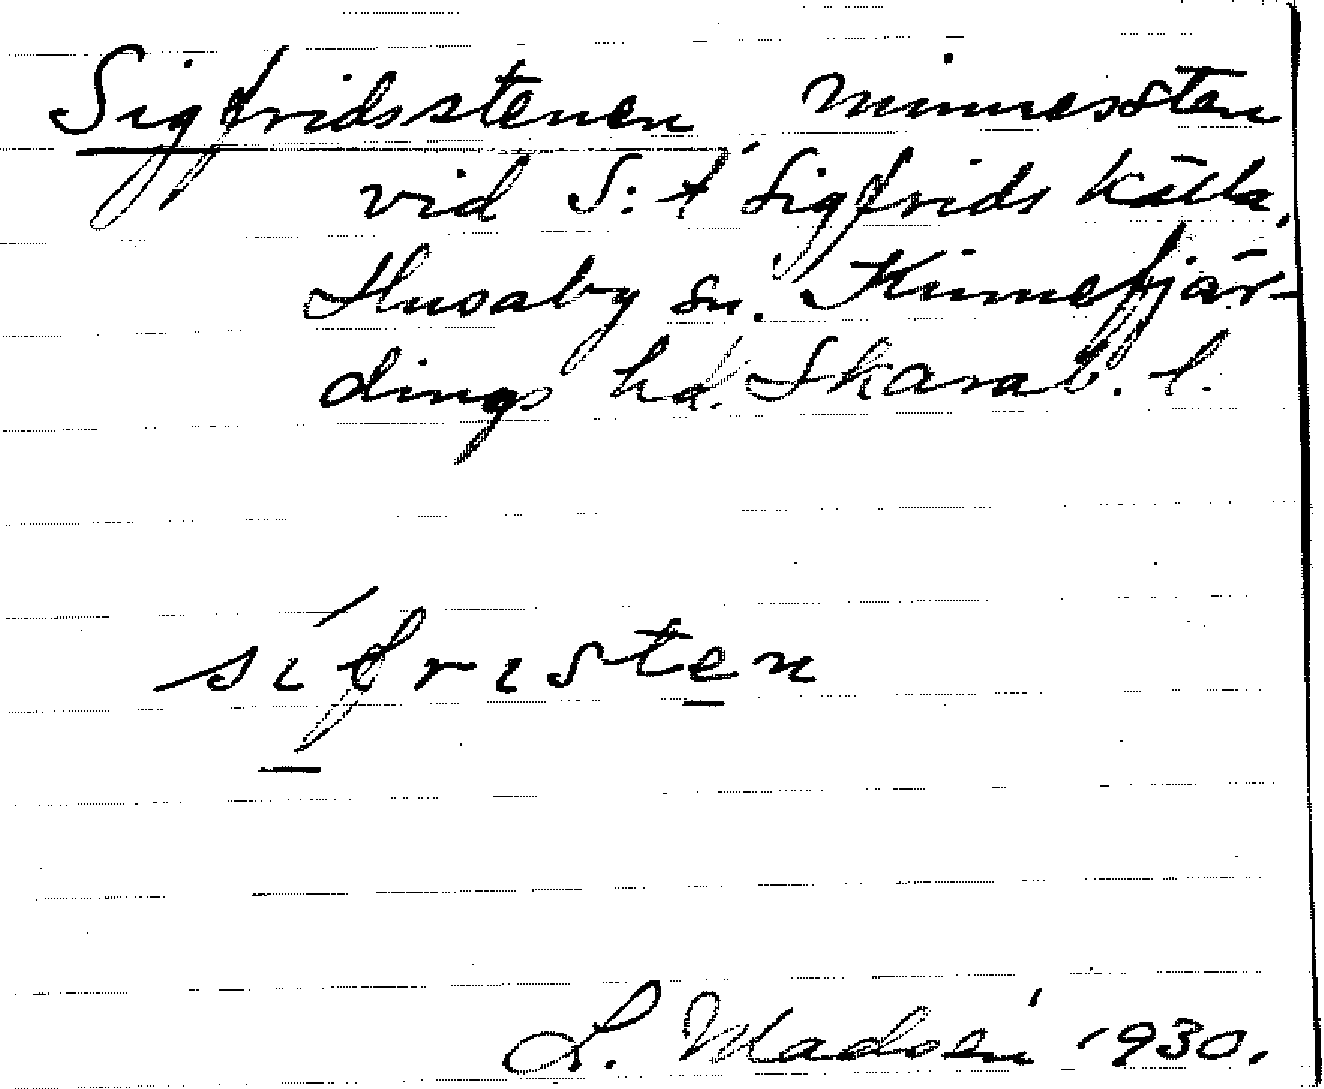 Sigfridsstenen minnessten
vid S:t Sigfrids källa,
Husaby sn. Kinnefjär-
dings hd. Skarab. l.
sífristen
L. Madsén 1930.